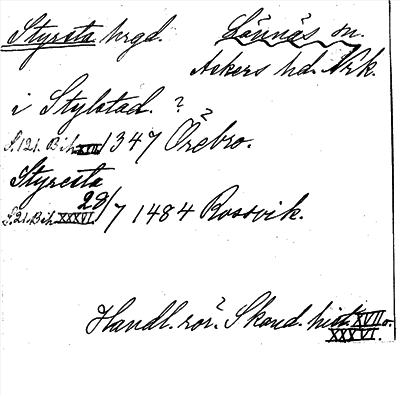 Styrsta hrgd. Lännäs sn.
Askers hd. Nrk.
i Stylstad. ?
S. 121. Bih. XVII 1347 Örebro.
Styresta
S. 21. Bih. XXXVI. 29/7 1484 Rossvik.
Handl. rör. Skand. hist. XVII o.
XXXVI.